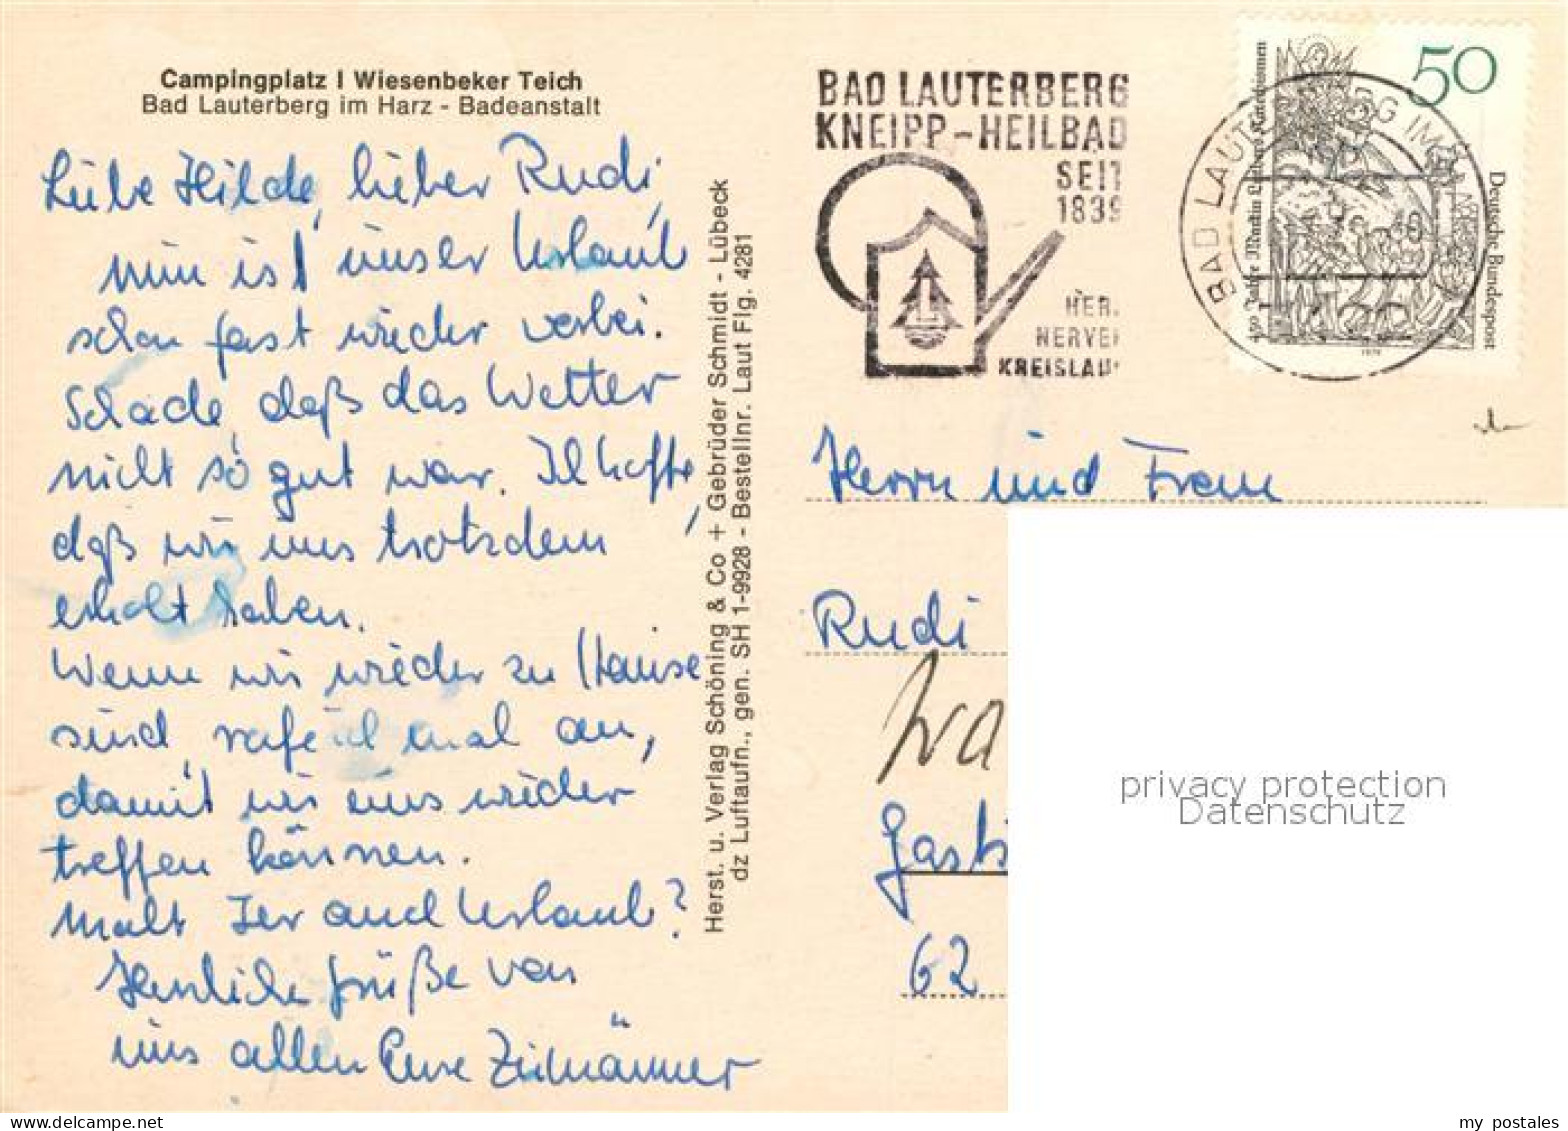 Campingplatz I Wiesenbeker Teich
Bad Lauterberg im Harz - Badeanstalt
Liebe Hilde, lieber Rudi,
nun ist unser Urlaub
schon fast wieder vorbei.
Schade, daß das Wetter
nicht so gut war. Ich hoffe,
daß wir uns trotzdem
erholt haben.
Wenn wir wieder zu Hause
sind, rufe ich mal an,
damit wir uns wieder
treffen können.
Malt Ihr auch Urlaub?
Herzliche Grüße von
uns allen Eure
Herst. u. Verlag Schöning & Co + Gebrüder Schmidt - Lübeck
dz Luftaufn., gen. SH 1-9928 - Bestellnr. Laut Flg. 4281
BAD LAUTERBERG
KNEIPP-HEILBAD
SEIT
1839
HER
NERVE
KREISLAU
BAD LAUTERBERG IM
50
Deutsche Bundespost
450 Jahre Martin Luthers Katechismen
1979
Herrn und Frau
Rudi
Gast
62
privacy protection
Datenschutz
my postales